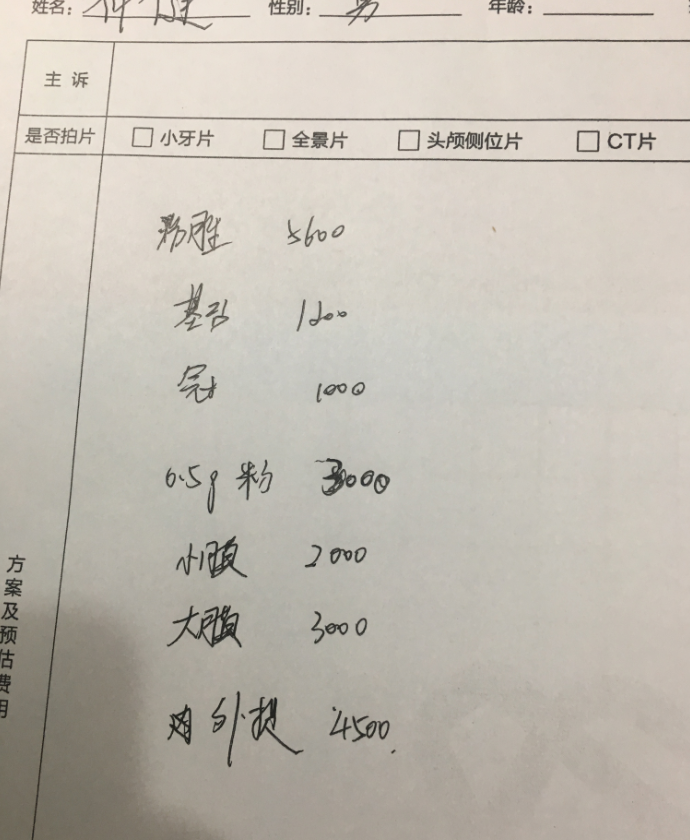 姓名： 性别：男 年龄：
主诉
是否拍片 □ 小牙片 □ 全景片 □ 头颅侧位片 □ CT片
方案及预估费用
5600
基台 1200
冠 1000
0.5g 粉 3000
小膜 2000
大膜 3000
外提 4500